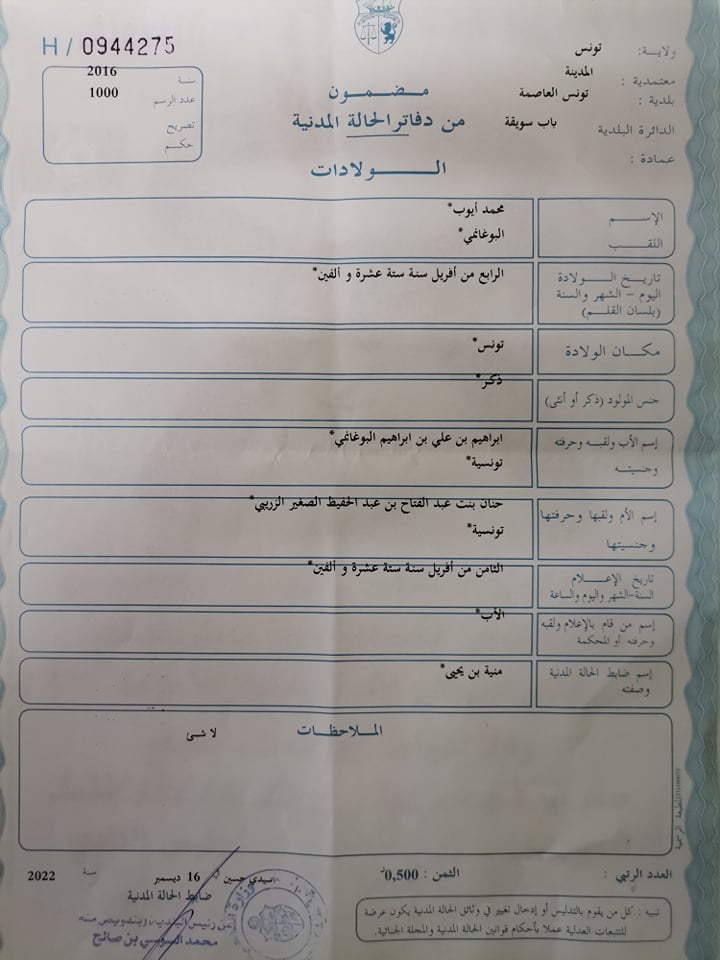 H / 0944275
ولاية: تونس
معتمدية: المدينة
بلدية: تونس العاصمة
الدائرة البلدية باب سويقة
عمادة:
سنة 2016
عدد الرسم 1000
تصريح
حكم
مضمون
من دفاتر الحالة المدنية
الولادات
الإسم محمد أيوب*
اللقب البوغانمي*
تاريخ الولادة الرابع من أفريل سنة ستة عشرة و ألفين*
اليوم - الشهر والسنة
(بلسان القلم)
مكان الولادة تونس*
جنس المولود (ذكر أو أنثى) ذكر*
إسم الأب ولقبه وحرفته ابراهيم بن علي بن ابراهيم البوغانمي*
وجنسيته تونسية*
إسم الأم ولقبها وحرفتها حنان بنت عبد الفتاح بن عبد الحفيظ الصغير الزريبي*
وجنسيتها تونسية*
تاريخ الإعلام الثامن من أفريل سنة ستة عشرة و ألفين*
السنة-الشهر واليوم والساعة
إسم من قام بالإعلام ولقبه الأب*
وحرفته أو المحكمة
إسم ضابط الحالة المدنية منية بن يحيى*
وصفته
الملاحظات
لا شئ
المطبعة الرسمية
العدد الرتبي: الثمن: 0,500د
سيدي حسين 16 ديسمبر سنة 2022
ضابط الحالة المدنية
عن رئيس البلدية وبتفويض منه
محمد السوسي بن صالح
تنبيه: كل من يقوم بالتدليس أو إدخال تغيير في وثائق الحالة المدنية يكون عرضة
للتتبعات العدلية عملا بأحكام قوانين الحالة المدنية والمجلة الجنائية.